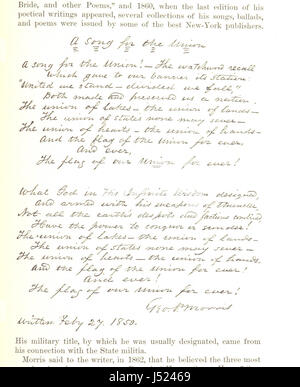 Bride, and other Poems," and 1860, when the last edition of his
poetical writings appeared, several collections of his songs, ballads,
and poems were issued by some of the best New-York publishers.
A Song for the Union
A song for the Union! — The watchword recall
Which gave to our banner its station:
"United we stand — divided we fall,"
Both made and preserved us a nation.
The union of lakes — the union of lands —
The union of states none may sever —
The union of hearts — the union of hands —
And the flag of the Union for ever
And ever,
The flag of our Union for ever!
What God in His Infinite Wisdom designed,
And armed with his weapons of thunder,
Not all the earth's despots and factions combined
Have the power to conquer or sunder!
The union of lakes — the union of lands —
The union of states none may sever —
The union of hearts — the union of hands —
And the flag of the Union for ever!
And ever!
The flag of our Union for ever!
Geo. P. Morris
Written Feby 27. 1850.
His military title, by which he was usually designated, came from
his connection with the State militia.
Morris said to the writer, in 1862, that he believed the three most
alamy
alamy
JE2469